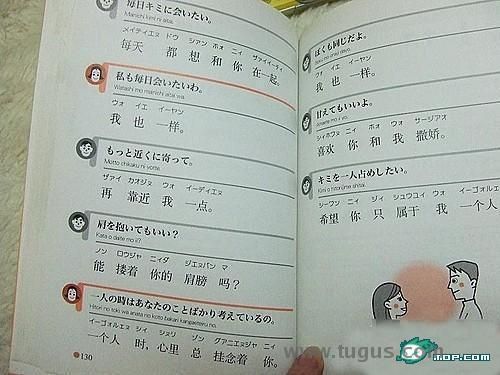 毎日キミに会いたい。
Mainichi kimi ni aitai.
メイティエヌ ドウ シアン ホォ ニィ ザァイイーチィ
每天 都 想 和 你 在一起。
私も毎日会いたいわ。
Watashi mo mainichi aitai wa.
ウォ イエ イーヤン
我 也 一样。
もっと近くに寄って。
Motto chikaku ni yotte.
ザァイ カオジヌ ウォ イーディエヌ
再 靠近 我 一点。
肩を抱いてもいい?
Kata o daite mo ii?
ノン ロウジャ ニィダ ジエヌパン マ
能 搂着 你的 肩膀 吗?
一人の時はあなたのことばかり考えているの。
Hitori no toki wa anata no koto bakari kangaeteru no.
イーゴォルエヌ シイ シヌリ ゾン グアニエヌジャ ニィ
一个人 时,心里 总 挂念着 你。
130
ぼくも同じだよ。
Boku mo onaji dayo.
ウォ イエ イーヤン
我 也 一样。
甘えてもいいよ。
シィホワヌ ニィ ホォ ウォ サージアオ
喜欢 你 和 我 撒娇。
キミを一人占めしたい。
Kimi o hitorijime shitai.
シーワン ニィ ジイ シュウユイ ウォ イーゴォルエ
希望 你 只 属于 我 一个人
www.tugus.com
.TOP.COM